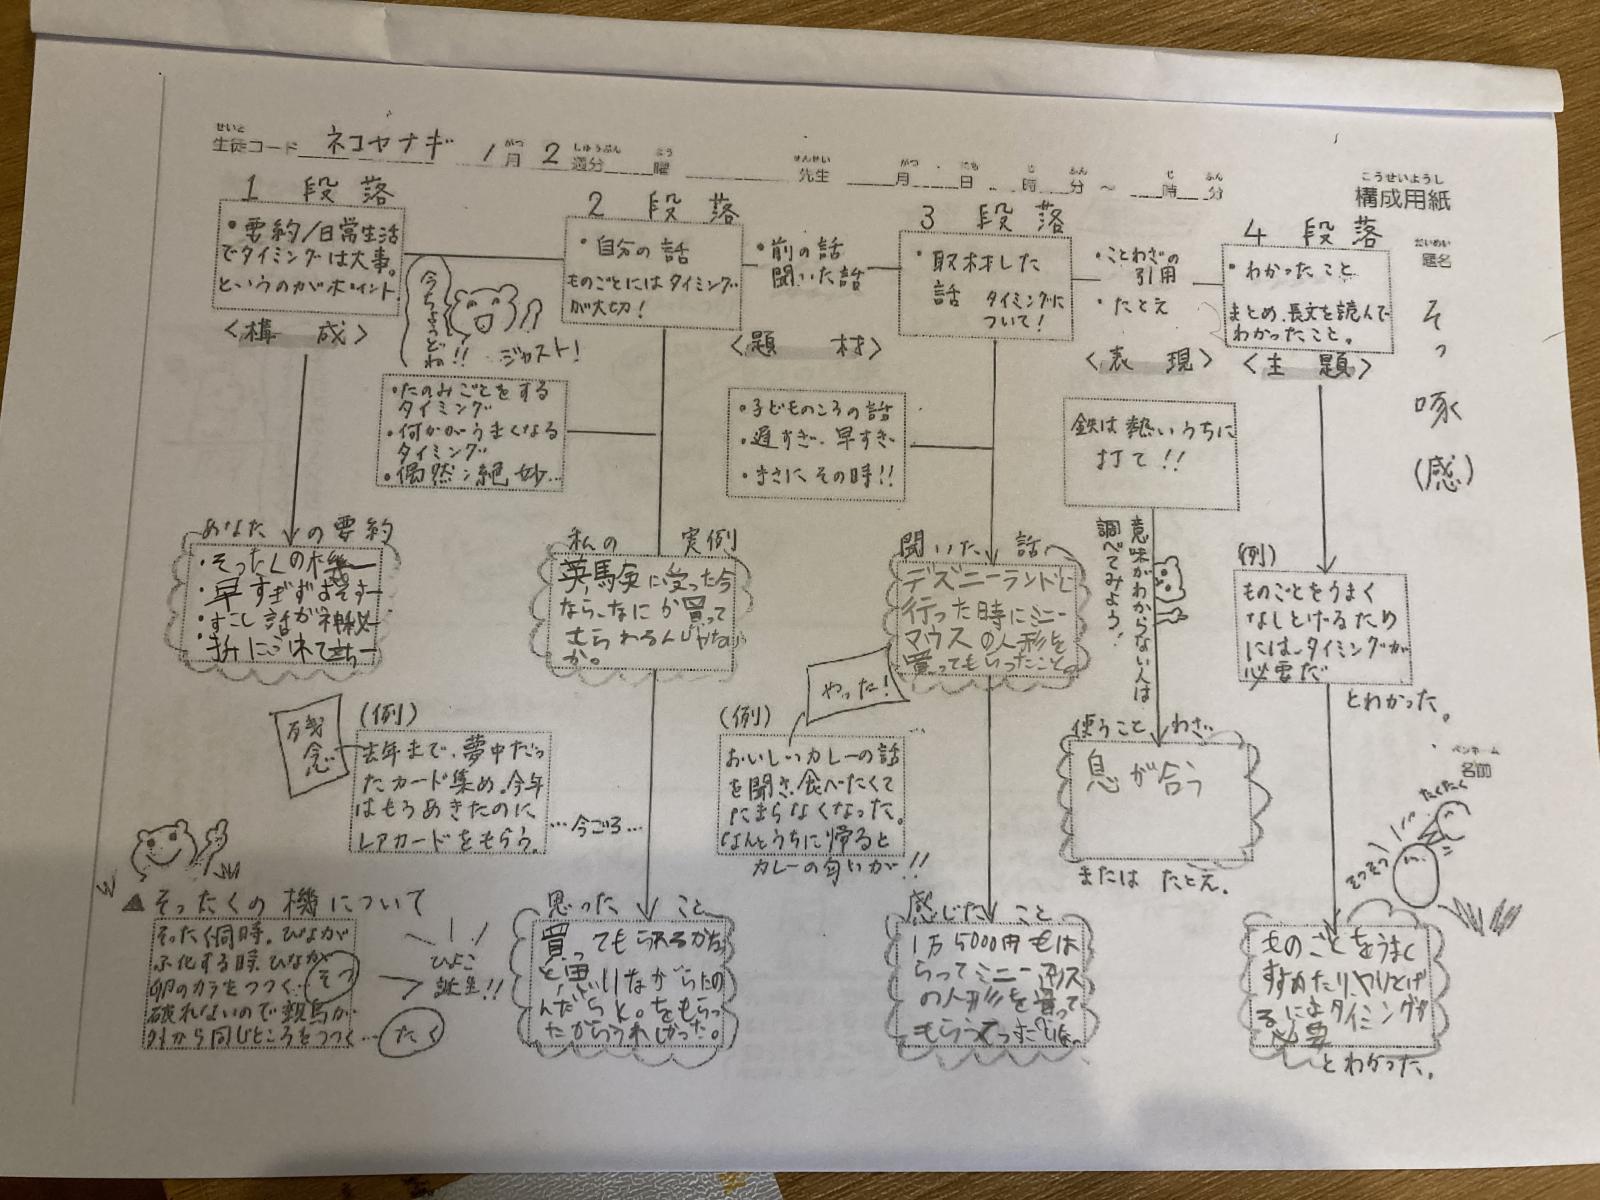 せいと
生徒コード ネコヤナギ 1月 2週分 曜 先生 月 日 時 分 ～ 時 分
がつ しゅうぶん よう せんせい がつ にち じ ふん じ ふん
こうせいようし
構成用紙
だいめい
題名
そっ啄(感)
ペンネーム
名前
1 段 落
・要約/日常生活
でタイミングは大事。
というのがポイント
<構 成>
今ちょうどね!!
ジャスト!
2 段 落
・自分の話
ものごとにはタイミング
が大切!
・前の話
聞いた話
<題 材>
3 段 落
・取材した
話 タイミングに
ついて!
・ことわざの
引用
・たとえ
<表 現>
4 段 落
・わかったこと
まとめ、長文を読んで
わかったこと。
<主 題>
・たのみごとをする
タイミング
・何かがうまくなる
タイミング
・偶然:絶妙…
・子どものころの話
・遅すぎ、早すぎ
・まさにその時!!
鉄は熱いうちに
打て!!
意味がわからない人は
調べてみよう!
あなたの要約
・そったくの機
・早すぎずおそす
・すこし話が神秘
私の 実例
に受った今
なら、なにか買って
もらわるんじゃない
か。
聞いた 話
デズニーランドに
行った時にミニー
マウスの人形を
買ってもらったこと。
(例)
ものごとをうまく
なしとげるため
には、タイミングが
必要だ
とわかった。
残念
(例)
去年まで、夢中だっ
たカード集め。今年
はもうあきたのに
レアカードをもらう。
…今ごろ…
やった!
(例)
おいしいカレーの話
を聞き、食べたくて
たまらなくなった。
なんとうちに帰ると
カレーの匂いが!!
使うことわざ
息が合う
または たとえ.
たくたく
そつそつ
▲そったくの機について
そったく同時。ひなが
ふ化する時、ひなが
卵のカラをつつく…そつ
破れないので親鳥が
外から同じところをつつく…たく
ひよこ
誕生!!
思ったこと
買ってもらえるかな
と、思いながらたの
んだらと。をもらっ
たからうれしかった。
感じたこと
1万5000円もは
らってミニーマウス
の人形を買って
もらうて
ものごとをうまく
すすめたりやりとげ
るにはタイミングが
必要
とわかった.